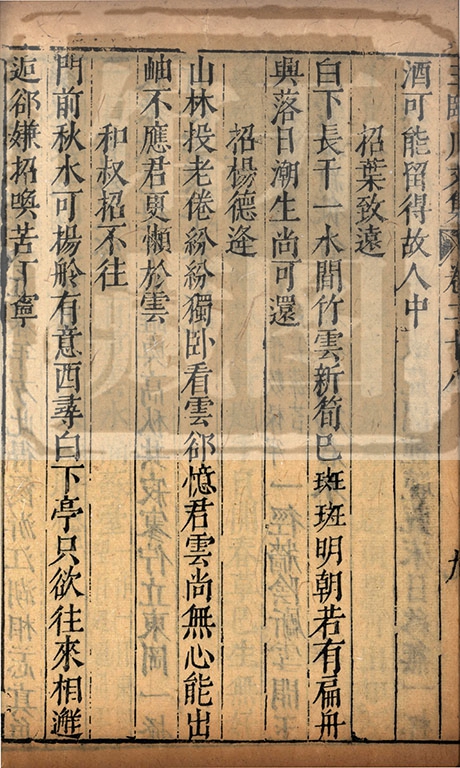 王臨川文集 卷二十八 九
酒可能留得故人中
招葉致遠
白下長干一水間竹雲新筍已斑斑明朝若有扁舟
興落日潮生尚可還
招楊德逢
山林投老倦紛紛獨卧看雲郤憶君雲尚無心能出
岫不應君更懶於雲
和叔招不往
門前秋水可揚舲有意西尋白下亭只欲往來相邂
逅郤嫌招喚苦丁寧